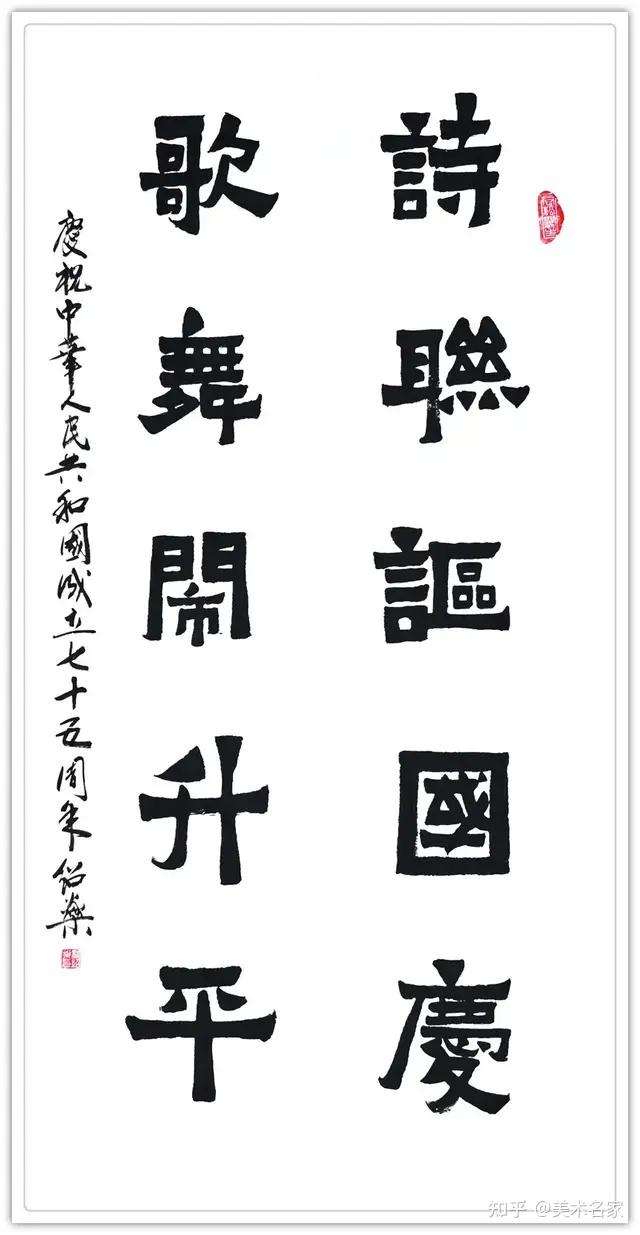 詩聯謳國慶
歌舞鬧升平
慶祝中華人民共和國成立七十五周年紹燊
知乎 @美术名家